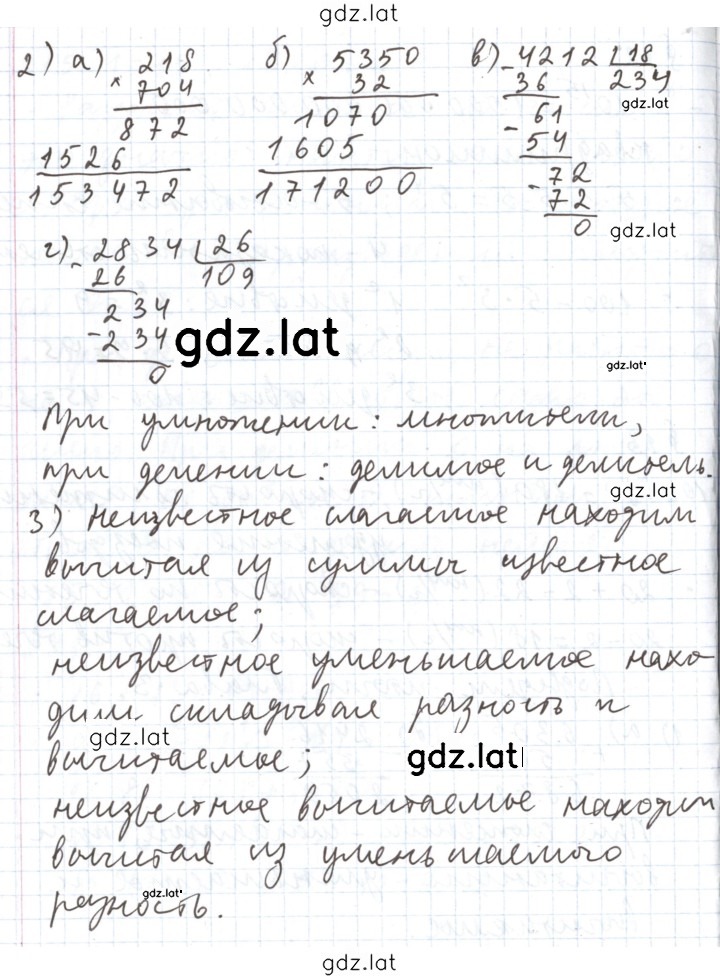 gdz.lat
2) а) 218 б) 5350 в) - 4212 | 18
× 704 × 32 36 234
872 1070 61 gdz.lat
1526 1605 - 54
153472 171200 72
- 72
0 gdz.lat
г) - 2834 | 26
26 109
234
- 234 gdz.lat
0 gdz.lat
При умножении: множители,
при делении: делимое и делитель.
gdz.lat
3) Неизвестное слагаемое находим
вычитая из суммы известное
слагаемое;
неизвестное уменьшаемое нахо-
дим складывая разность и
gdz.lat
вычитаемое; gdz.lat
неизвестное вычитаемое находим
вычитая из уменьшаемого
gdz.lat
разность.
gdz.lat